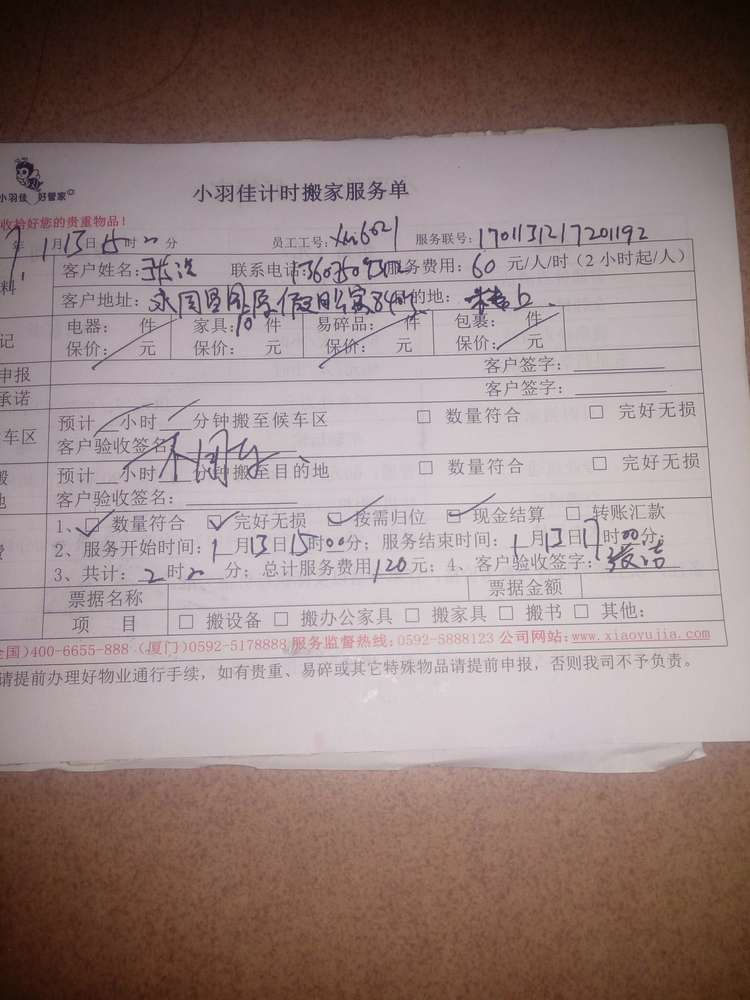 小羽佳 好管家
小羽佳计时搬家服务单
收拾好您的贵重物品!
年 1月13日15时00分 员工工号: xm6021 服务联号: 1701131217201192
料 客户姓名: 联系电话: 服务费用: 60 元/人/时(2小时起/人)
客户地址: 目的地:
记 电器: 件 家具: 10 件 易碎品: 件 包裹: 件
保价: 元 保价: 元 保价: 元 保价: 元
申报 客户签字:
承诺 客户签字:
车区 预计 小时 分钟搬至候车区 □ 数量符合 □ 完好无损
客户验收签名:
搬 预计 小时 分钟搬至目的地 □ 数量符合 □ 完好无损
地 客户验收签名:
1、☑ 数量符合 ☑ 完好无损 ☑ 按需归位 ☑ 现金结算 □ 转账汇款
2、服务开始时间: 1月13日15时00分; 服务结束时间: 1月13日17时00分。
费 3、共计: 2时00分; 总计服务费用120元; 4、客户验收签字:
票据名称 票据金额
项 目 □ 搬设备 □ 搬办公家具 □ 搬家具 □ 搬书 □ 其他:
全国)400-6655-888 (厦门)0592-5178888 服务监督热线:0592-5888123 公司网站:www.xiaoyujia.com
请提前办理好物业通行手续，如有贵重、易碎或其它特殊物品请提前申报，否则我司不予负责。